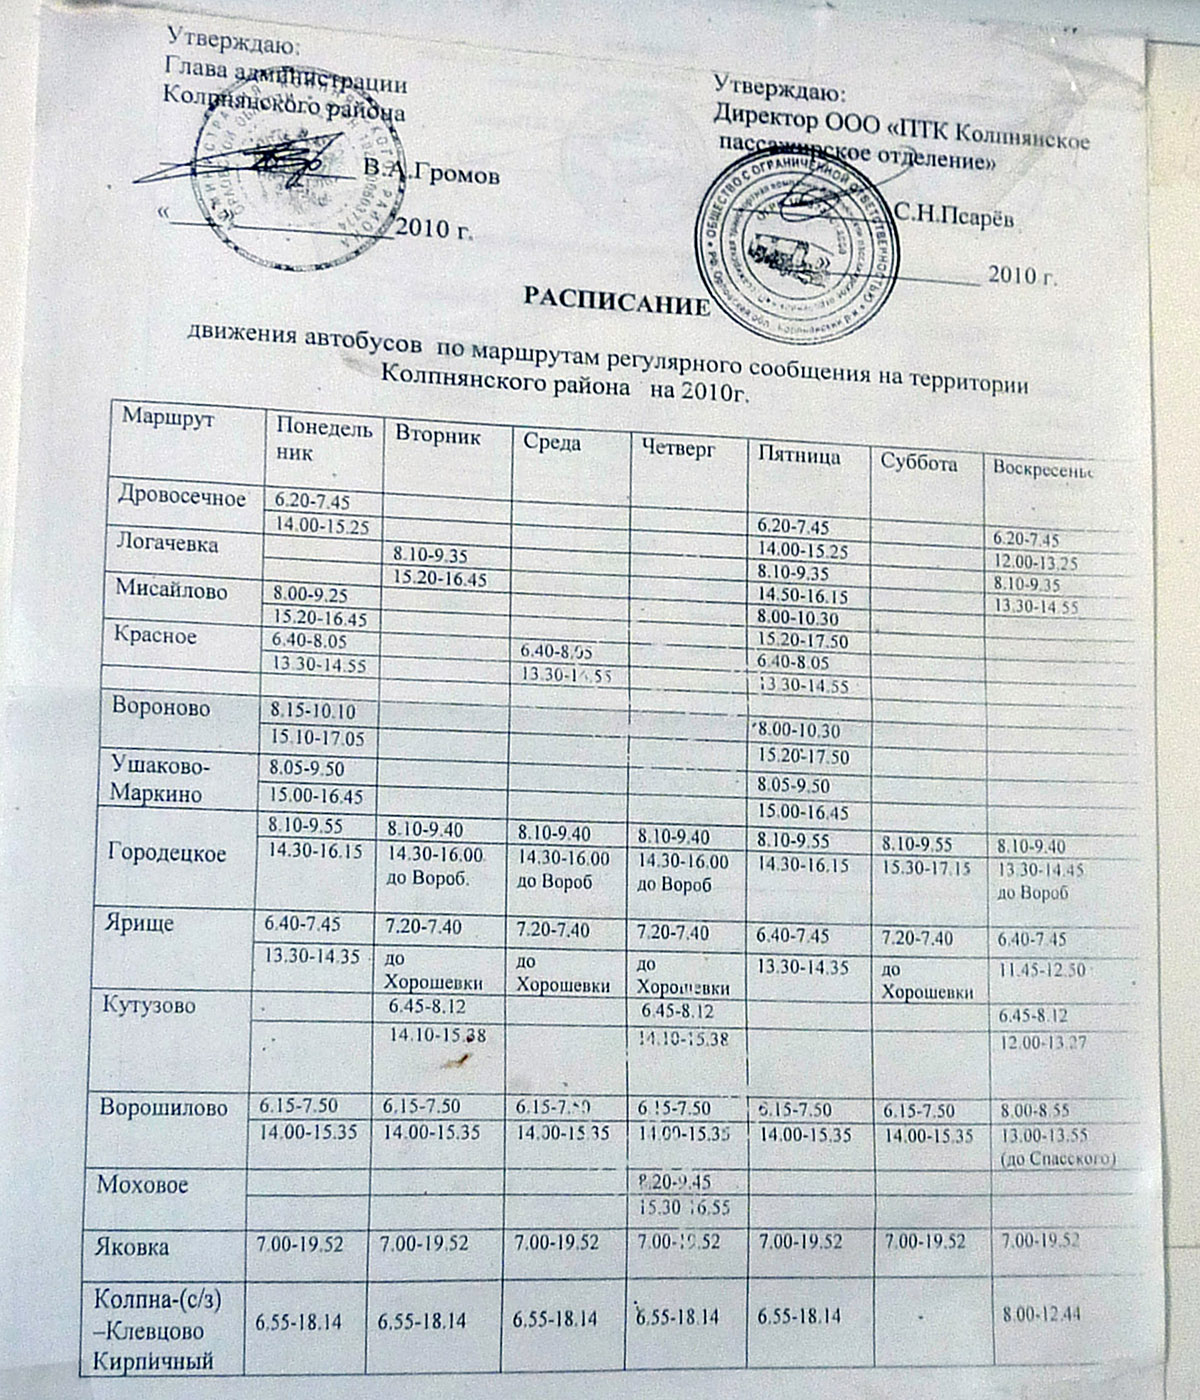 Утверждаю:
Глава администрации
Колпнянского района
В.А.Громов
« 2010 г.
Утверждаю:
Директор ООО «ПТК Колпнянское
пассажирское отделение»
С.Н.Псарёв
2010 г.
ОБЩЕСТВО С ОГРАНИЧЕННОЙ ОТВЕТСТВЕННОСТЬЮ
РАСПИСАНИЕ
движения автобусов по маршрутам регулярного сообщения на территории
Колпнянского района на 2010г.
Маршрут Понедель Вторник Среда Четверг Пятница Суббота Воскресенье
ник
Дровосечное 6.20-7.45 6.20-7.45 6.20-7.45
14.00-15.25 14.00-15.25 12.00-13.25
Логачевка 8.10-9.35 8.10-9.35 8.10-9.35
15.20-16.45 14.50-16.15 13.30-14.55
Мисайлово 8.00-9.25 8.00-10.30
15.20-16.45 15.20-17.50
Красное 6.40-8.05 6.40-8.05 6.40-8.05
13.30-14.55 13.30-14.55 13.30-14.55
Вороново 8.15-10.10 8.00-10.30
15.10-17.05 15.20-17.50
Ушаково- 8.05-9.50 8.05-9.50
Маркино 15.00-16.45 15.00-16.45
8.10-9.55 8.10-9.40 8.10-9.40 8.10-9.40 8.10-9.55 8.10-9.55 8.10-9.40
Городецкое 14.30-16.15 14.30-16.00 14.30-16.00 14.30-16.00 14.30-16.15 15.30-17.15 13.30-14.45
до Вороб. до Вороб до Вороб до Вороб
Ярище 6.40-7.45 7.20-7.40 7.20-7.40 7.20-7.40 6.40-7.45 7.20-7.40 6.40-7.45
13.30-14.35 до до до 13.30-14.35 до 11.45-12.50
Хорошевки Хорошевки Хорошевки Хорошевки
Кутузово 6.45-8.12 6.45-8.12 6.45-8.12
14.10-15.38 14.10-15.38 12.00-13.27
Ворошилово 6.15-7.50 6.15-7.50 6.15-7.50 6.15-7.50 6.15-7.50 6.15-7.50 8.00-8.55
14.00-15.35 14.00-15.35 14.00-15.35 14.00-15.35 14.00-15.35 14.00-15.35 13.00-13.55
(до Спасского)
Моховое 8.20-9.45
15.30-16.55
Яковка 7.00-19.52 7.00-19.52 7.00-19.52 7.00-19.52 7.00-19.52 7.00-19.52 7.00-19.52
Колпна-(с/з)
–Клевцово 6.55-18.14 6.55-18.14 6.55-18.14 6.55-18.14 6.55-18.14 8.00-12.44
Кирпичный